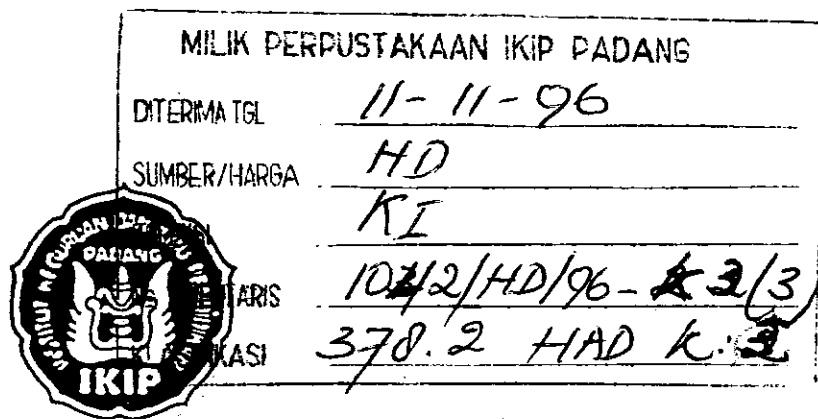 MILIK PERPUSTAKAAN IKIP PADANG
DITERIMA TGL 11-11-96
SUMBER/HARGA HD
KI
TARIS /2/HD/96- (3)
KASI 378.2 HAD K.
PADANG
IKIP